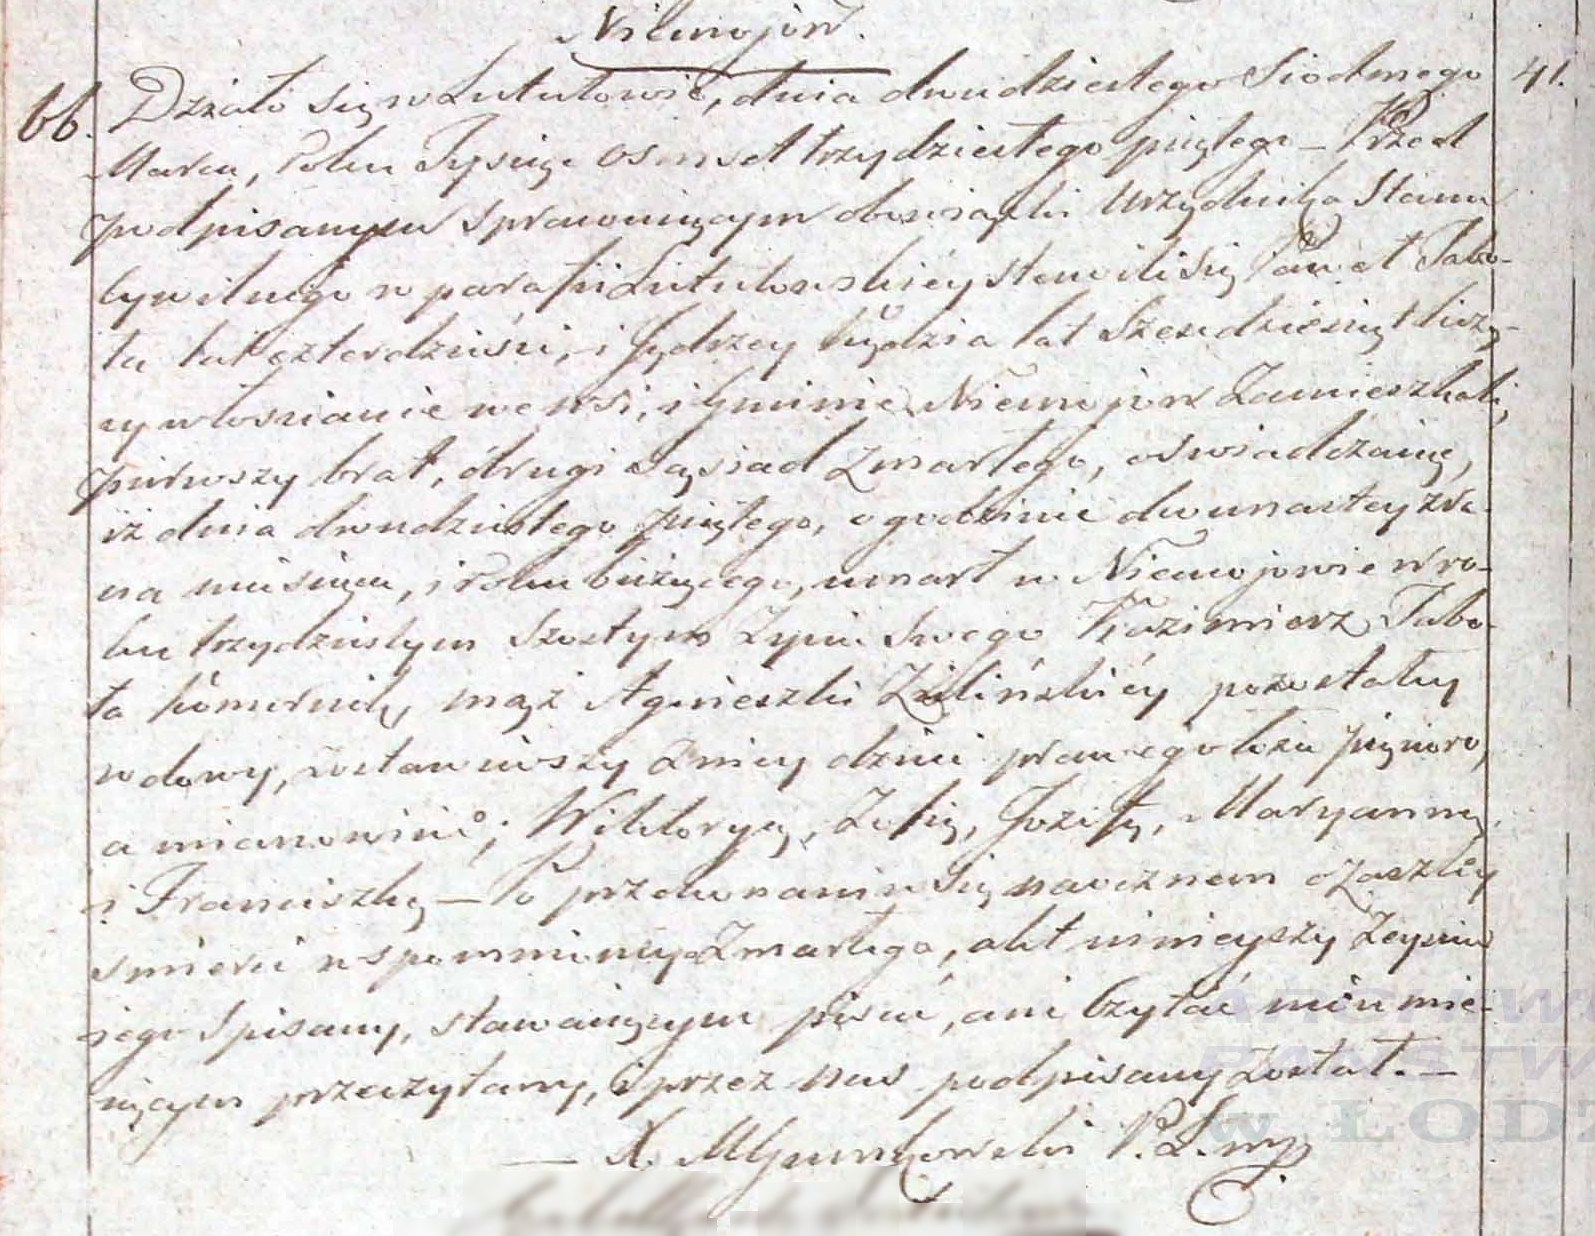 Niemojów.
66. Działo się w Lututowie, dnia dwudziestego Siodmego 41.
Marca, Roku Tysiąc osmset trzydziestego piątego – Przed
podpisanym sprawuiącym obowiązki Urzędnika Stanu
cywilnego w parafii Lututowskiéy stawili się Paweł Tabo-
ta lat czterdzieści, i Jędrzey lat Szesdziesiąt liczą-
cy włoscianie we wsi, i Gminie Niemojów Zamieszkali,
pierwszy brat, drugi sąsiad Zmarłego, oswiadczaiąc,
iż dnia dwudziestego piątego, o godzinie dwunastey zra-
na miesiąca, i roku bieżącego, umarł w Niemojowie w ro-
ku trzydziestym Szostym Zycia Swego Kazimierz Tabo-
ta komornik, mąż Agnieszki pozostałey
wdowy, zostawiwszy z niey dzieci prawego łoża pięcioro,
a mianowicie; Wiktoryą, Zofią, Jozefę, Maryannę,
i Franciszkę – Po przekonaniu się naocznem o Zaszłéy
smierci wspomnionego Zmarłego, akt ninieyszy Zeyscia
iego Spisany, stawaiącym pisać, ani Czytać nieumie-
iącym przeczytany, i przez nas podpisany Został. –
– X. P. L. mp
ARCHIW
PAŃSTW
w ŁODZ